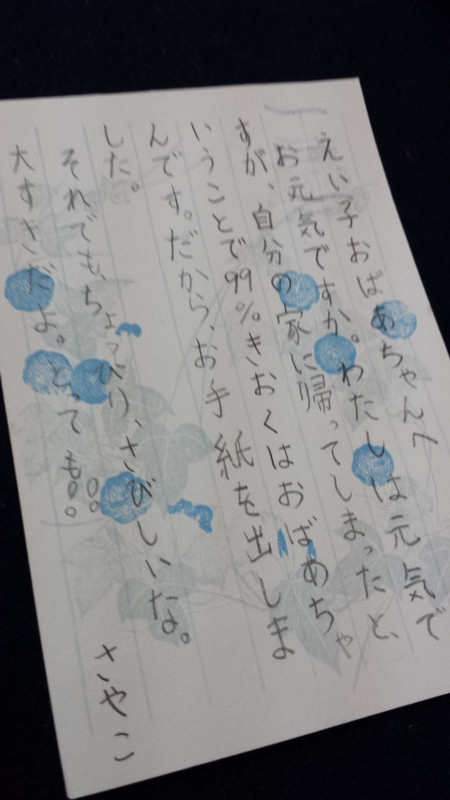 えい子おばあちゃんへ
お元気ですか。わたしは元気で
すが、自分の家に帰ってしまったと、
いうことで99%きおくはおばあちゃ
んです。だから、お手紙を出しま
した。
それでも、ちょっぴり、さびしいな。
大すきだよ。とっても。。
さやこ